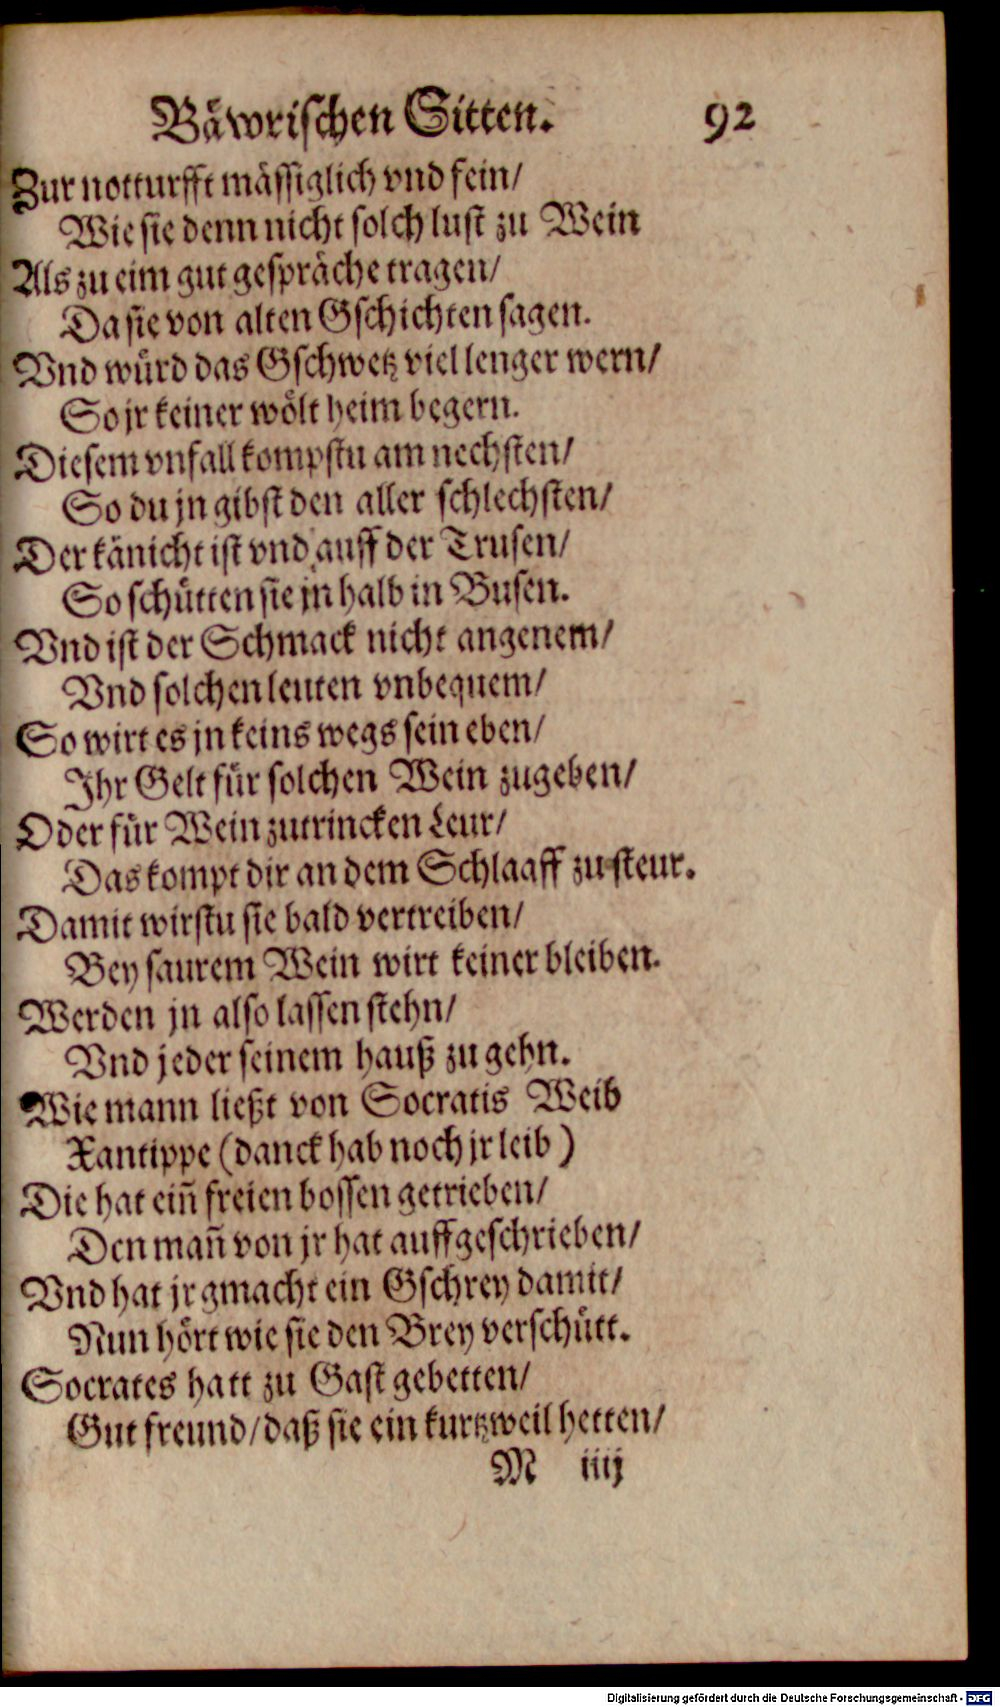 Bäwrischen Sitten. 92
Zur notturfft mässiglich vnd fein/
Wie sie denn nicht solch lust zu Wein
Als zu eim gut gespräche tragen/
Da sie von alten Gschichten sagen.
Vnd würd das Gschwetz viel lenger wern/
So jr keiner wölt heim begern.
Diesem vnfall kompstu am nechsten/
So du jn gibst den aller schlechsten/
Der känicht ist vnd auff der Trusen/
So schütten sie jn halb in Busen.
Vnd ist der Schmack nicht angenem/
Vnd solchen leuten vnbequem/
So wirt es jn keins wegs sein eben/
Ihr Gelt für solchen Wein zugeben/
Oder für Wein zutrincken Leur/
Das kompt dir an dem Schlaaff zu steur.
Damit wirstu sie bald vertreiben/
Bey saurem Wein wirt keiner bleiben.
Werden jn also lassen stehn/
Vnd jeder seinem hauß zu gehn.
Wie mann ließt von Socratis Weib
Xantippe (danck hab noch jr leib)
Die hat eiñ freien bossen getrieben/
Den mañ von jr hat auffgeschrieben/
Vnd hat jr gmacht ein Gschrey damit/
Nun hört wie sie den Brey verschütt.
Socrates hatt zu Gast gebetten/
Gut freund/ daß sie ein kurtzweil hetten/
M iiij
Digitalisierung gefördert durch die Deutsche Forschungsgemeinschaft - DFG